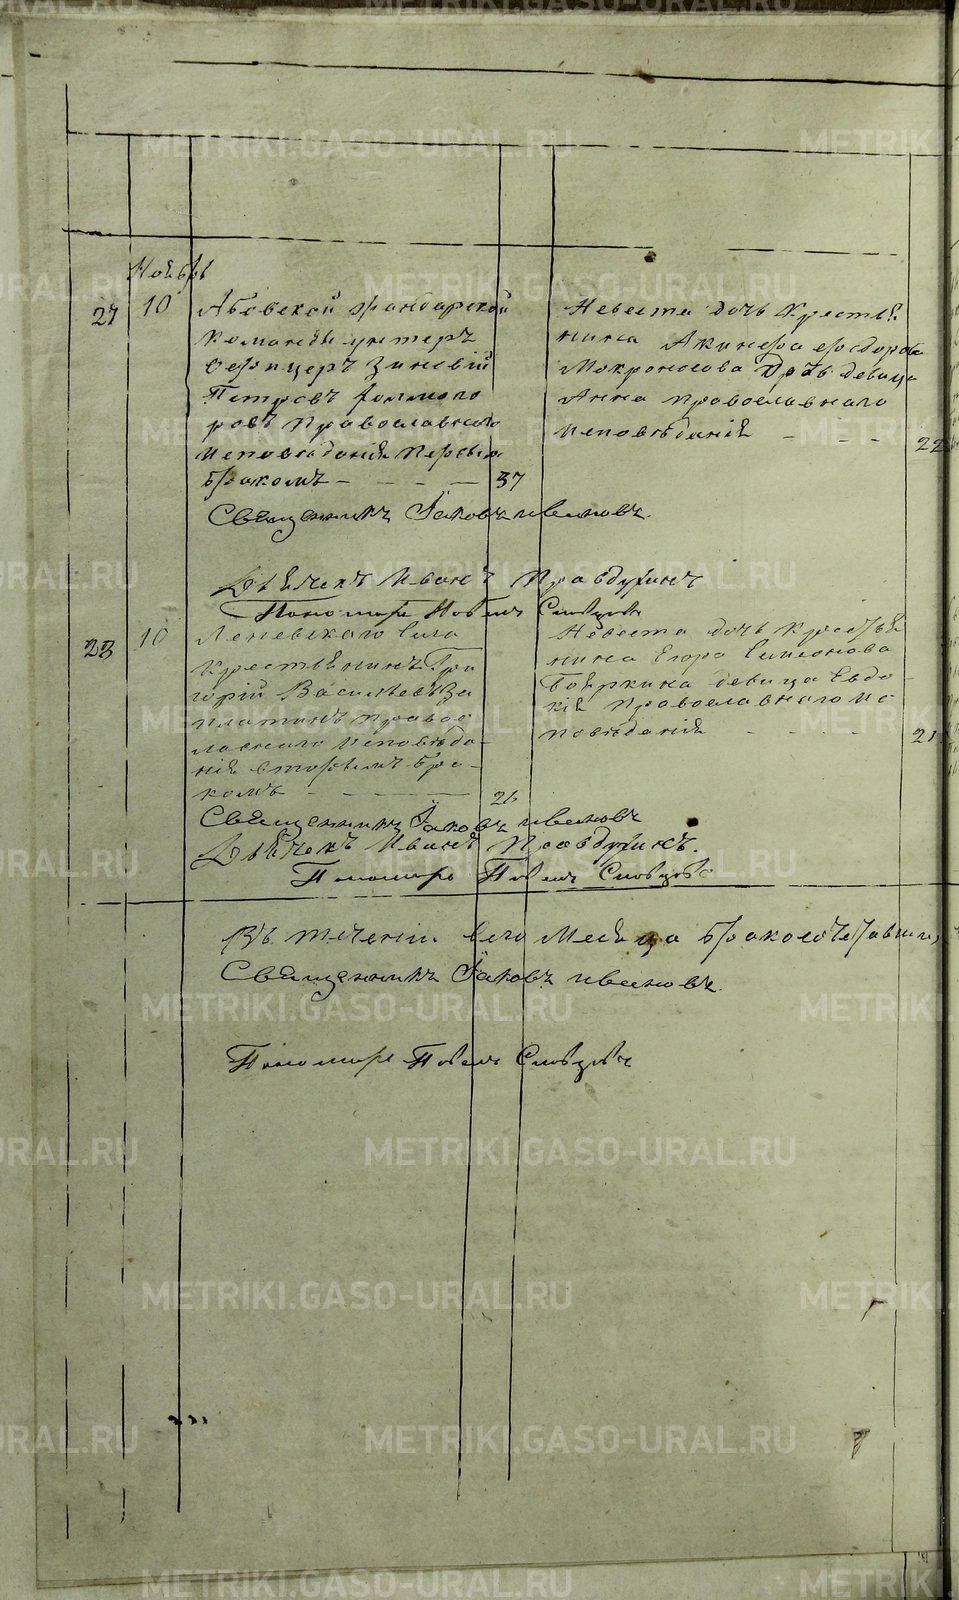 Ноябрь
27 10
Жандарской
Команды унтеръ
Офицеръ Зиновій
Петровъ
ровъ Православнаго
Исповѣданія Первымъ
бракомъ 37
Невеста дочь Крестья
нина Акинфа Федорова
Мокроносова дочь девица
Анна православнаго
исповѣданія 22
Священникъ Іаковъ Ивановъ.
Дьячекъ Иванъ Правдухинъ
Пономарь Павелъ Словцовъ
28 10
Леневскаго села
Крестьянинъ Гри
горій Васильевъ За
платинъ Правос
лавнаго Исповѣда-
нія вторымъ бра-
комъ 26
Невеста дочь Крестья
нина Егора Симионова
Бояркина девица Евдо
кія Православнаго ис
поведанія 21
Священникъ Іаковъ Ивановъ
Дьячекъ Иванъ Правдухинъ.
Пономарь Павелъ Словцовъ
Въ теченіи сего месяца бракосочетавших
Священникъ Іаковъ Ивановъ.
Пономарь Павелъ Словцовъ
METRIKI.GASO-URAL.RU